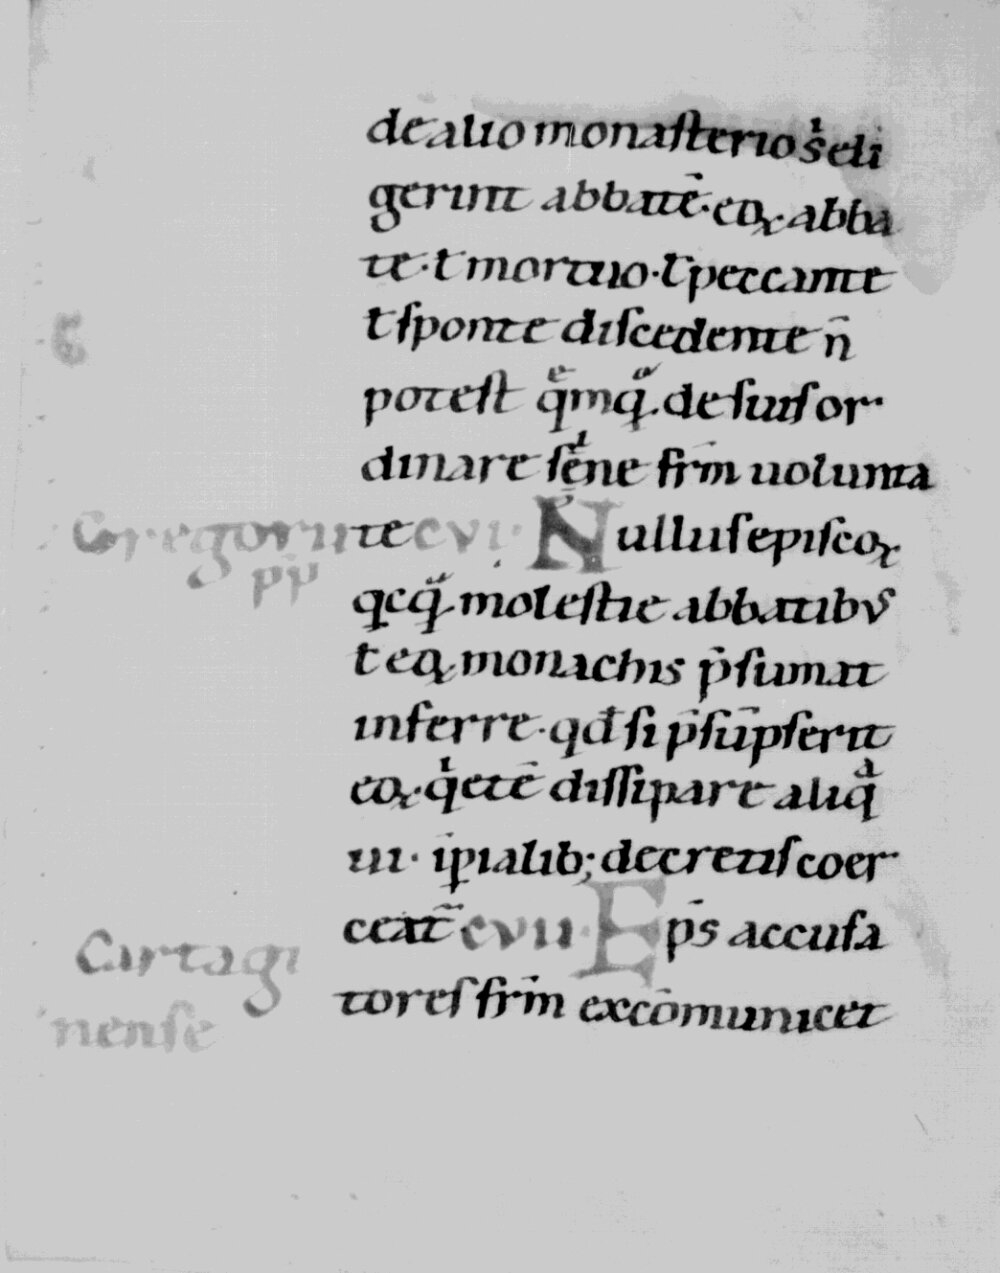 de alio monasterio sͥ eli
gerint abbatē· eoꝝ abba
te· ł mortuo· ł peccante
ł sponte discedente n̄
potest qͤmqᷓ. de suis or
dinare sͥ bene frm̄ uolunta
te CVI· Nullus episcoꝝ
Gregorius
pp̄
qcqᷓ molestie abbatibus
ł eoꝝ monachis p̄sumat
inferre· qđ si p̄sūpserit
eoꝝ· qͥetē dissipare aliqͣ
ui· īpialib; decretis coer
ceat᷑ CVII· Ep̄s accusa
Cartagi
tores frm̄ excōmunicet
nense